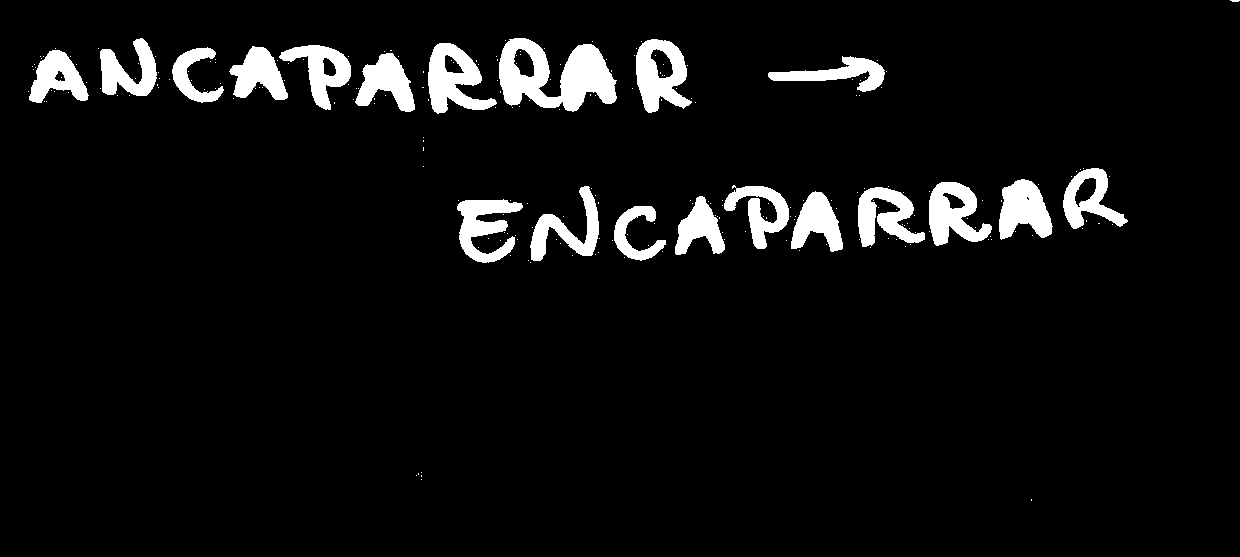 ANCAPARRAR →
ENCAPARRAR